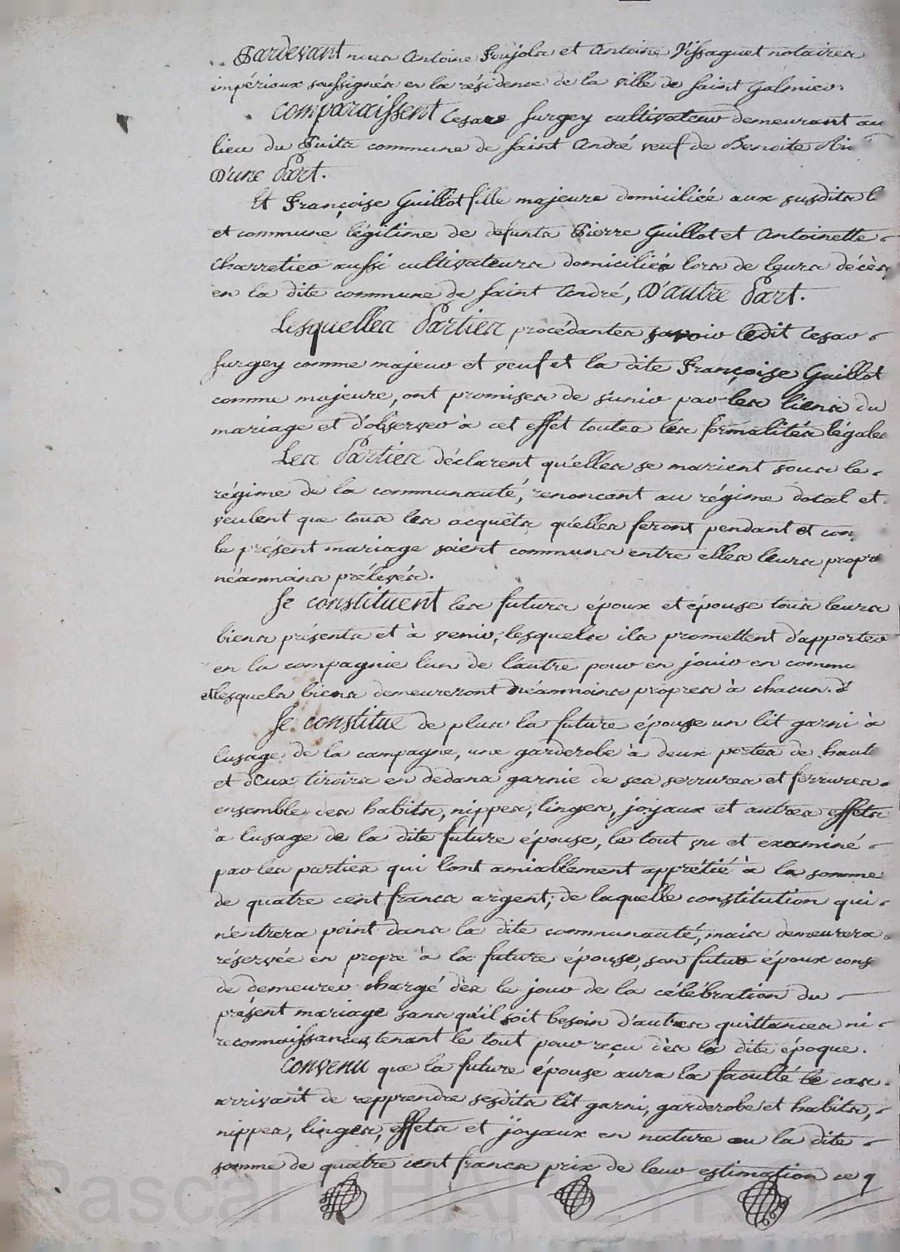 Pardevant nous Antoine Poujola et Antoine Vissaguet notaires
impériaux soussignés en la résidence de la ville de Saint Galmier.
Comparaissent Cesard Surgey cultivateur demeurant au
lieu du Puits commune de Saint André veuf de Benoite
D'une Part.
Et Françoise Guillot fille majeure domiciliée aux susdits l
et commune légitime de defunts Pierre Guillot et Antoinette
Charretier aussi cultivateurs domiciliés lors de leurs décès
en la dite commune de Saint André, D'autre Part.
Lesquelles Parties procédantes savoir ledit Cesar
Surgey comme majeur et veuf et la dite Françoise Guillot
comme majeure, ont promises de s'unir par les liens du
mariage et d'observer à cet effet toutes les formalités légales
Les Parties déclarent qu'elles se marient sous le
régime de la communauté, renoncent au régime dotal et
veulent que tous les acquêts qu'elles feront pendant et con
le présent mariage soient communs entre elles leurs propr
néanmoins prélevés.
Se constituent les futurs époux et épouse tous leurs
biens présents et à venir, lesquels ils promettent d'apporter
en la compagnie lun de lautre pour en jouir en commu
et lesquels biens demeureront néanmoins propres à chacun d'
Se constitue de plus la future épouse un lit garni à
lusage de la campagne, une garderobe à deux portes de haut
et deux tiroirs en dedans garnie de ses serrures et ferrures
ensemble ses habits, nippes, linges, joyaux et autres effets
à lusage de la dite future épouse, le tout vu et examiné
par les parties qui lont amiallement apprétié à la somme
de quatre cent francs argent; de laquelle constitution qui
n'entrera point dans la dite communauté, mais demeurera
réservée en propre à la future épouse, son futur époux cons
de demeurer chargé dès le jour de la célébration du
présent mariage sans qu'il soit besoin d'autres quittances ni
reconnaissances tenant le tout pour reçu dès la dite époque.
Convenu que la future épouse aura la faculté le cas
arrivant de repprendre sesdits lit garni, garderobe et habits,
nippes, linges, effets et joyaux en nature ou la dite
somme de quatre cent francs prix de leur estimation ce q
Pascal CHAREYRON